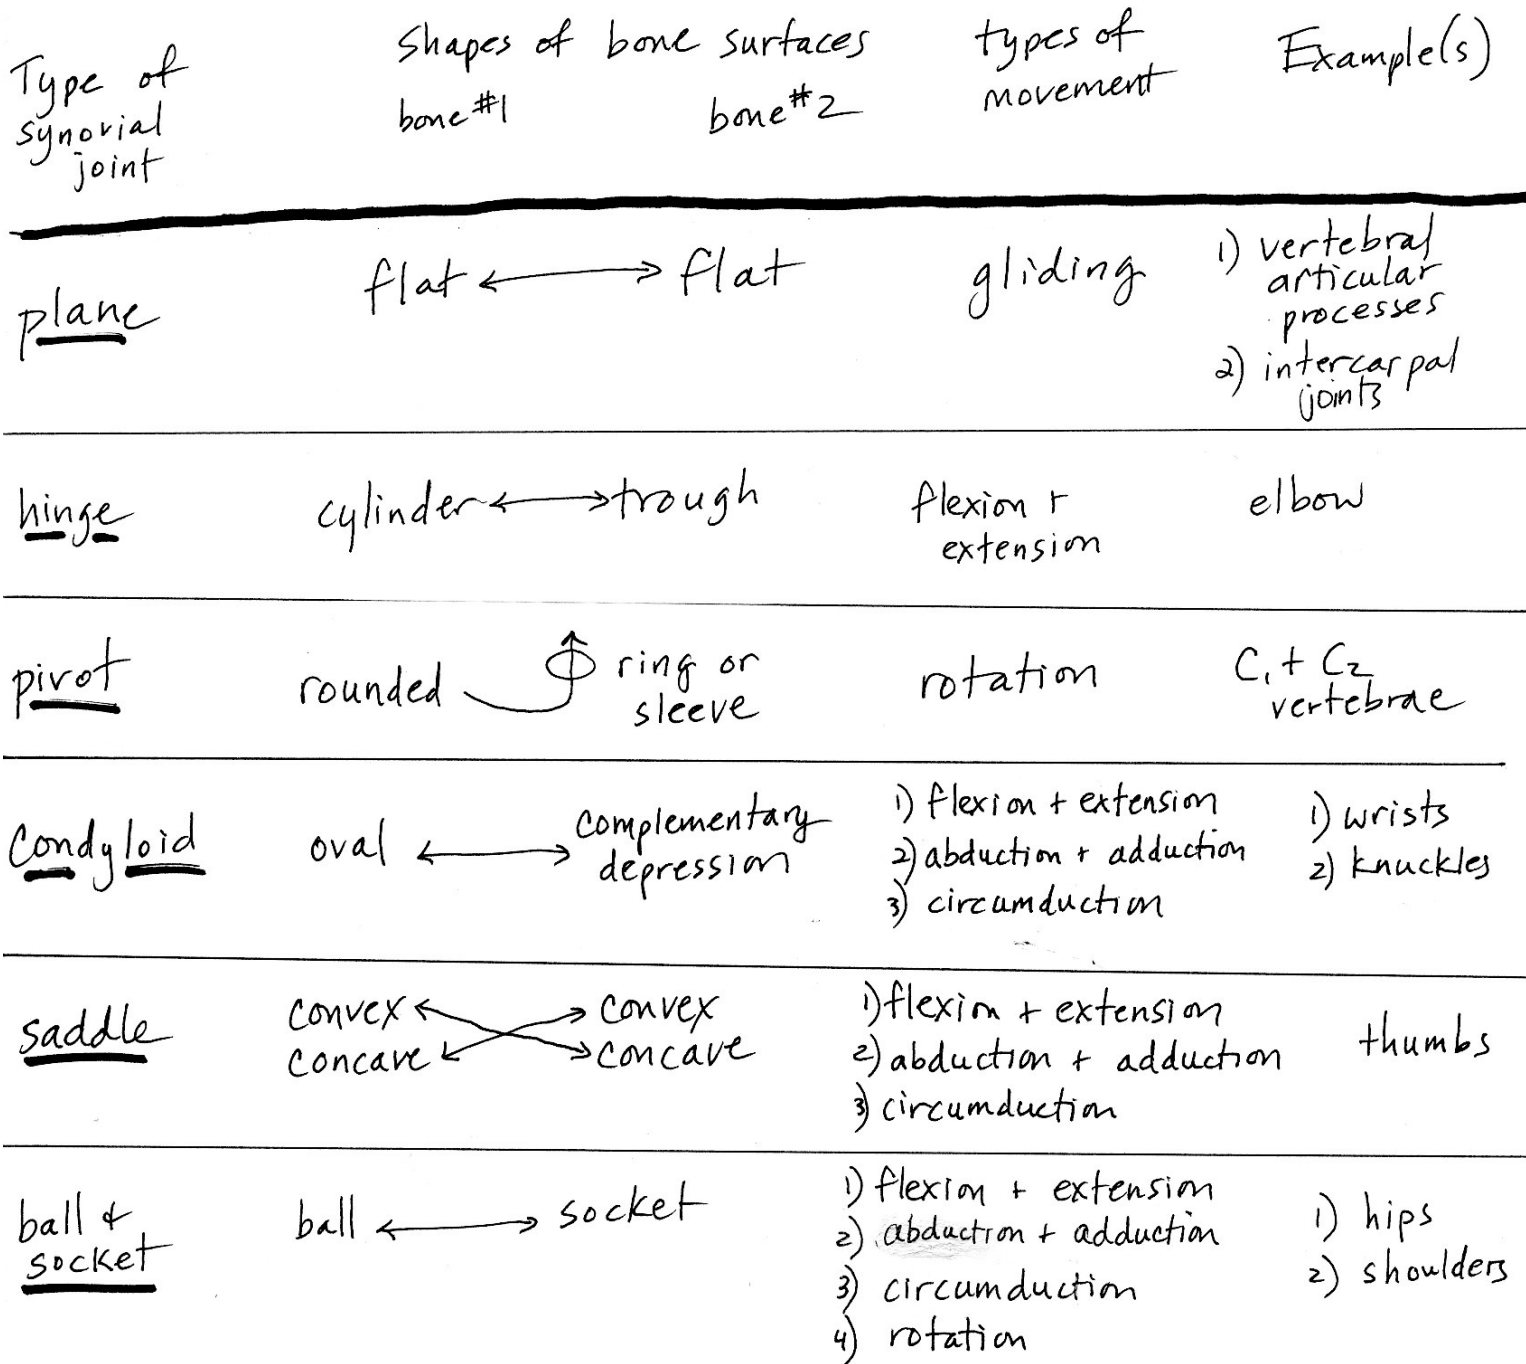 Type of synovial joint
Shapes of bone surfaces
bone #1
bone #2
types of movement
Example(s)
plane
flat ↔ flat
gliding
1) vertebral
articular
processes
2) intercarpal
joints
hinge
cylinder ↔ trough
flexion +
extension
elbow
pivot
rounded
ring or
sleeve
rotation
C1 + C2
vertebrae
condyloid
oval ↔
complementary
depression
1) flexion + extension
2) abduction + adduction
3) circumduction
1) wrists
2) knuckles
saddle
convex
concave
convex
concave
1) flexion + extension
2) abduction + adduction
3) circumduction
thumbs
ball &
socket
ball ↔ socket
1) flexion + extension
2) abduction + adduction
3) circumduction
4) rotation
1) hips
2) shoulders